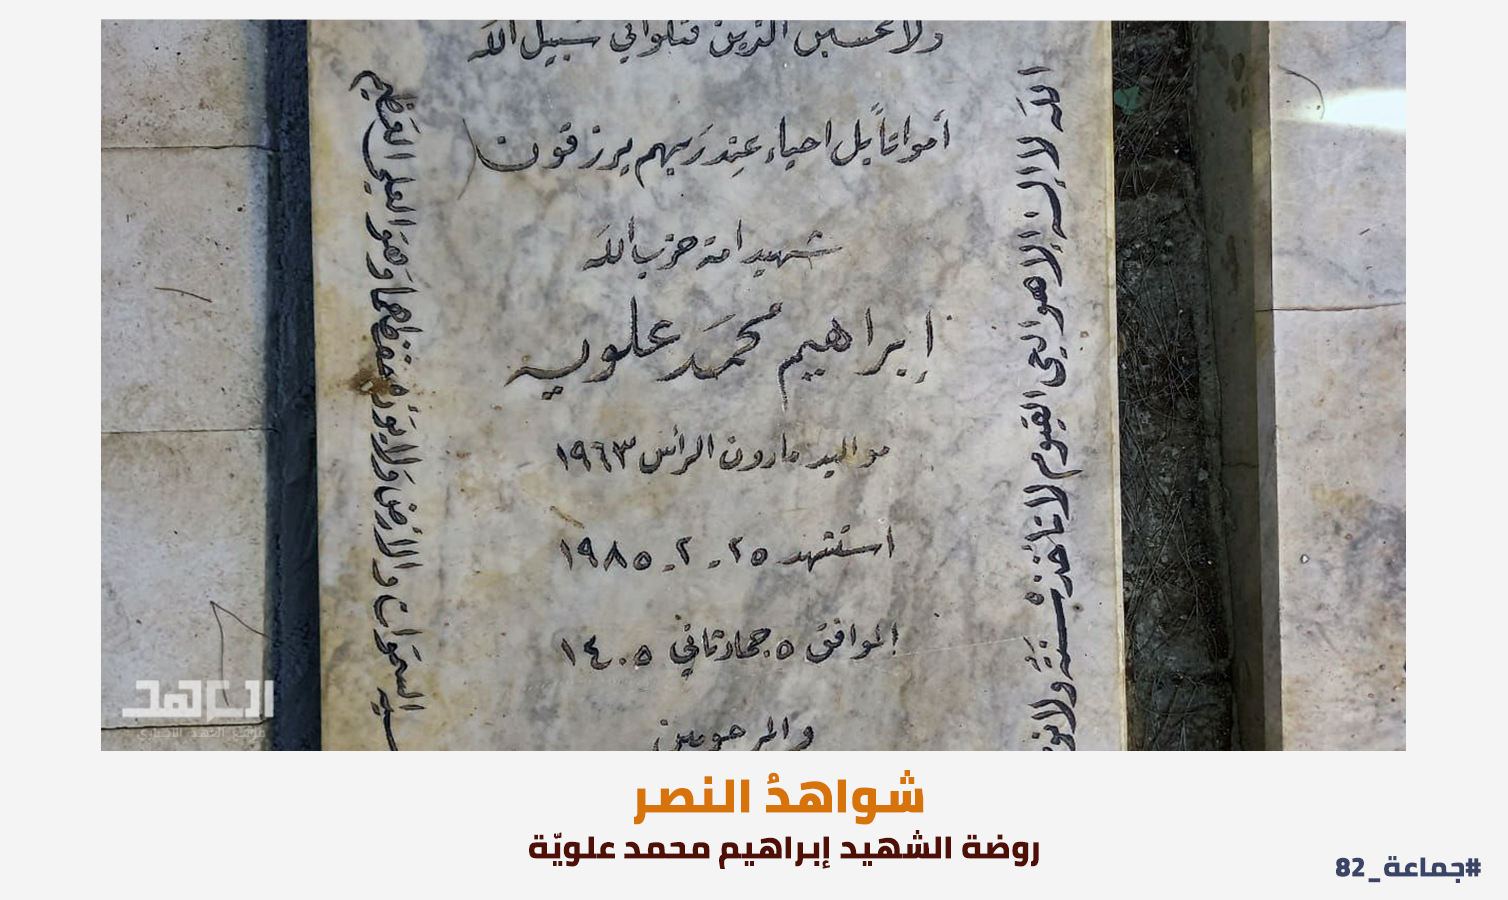 ولا تحسبن الذين قتلوا في سبيل الله
أمواتاً بل احياء عند ربهم يرزقون
شهيد امة حزب الله
إبراهيم محمد علويه
مواليد مارون الرأس ١٩٦٣
استشهد ٢٥ - ٢ - ١٩٨٥
الموافق ٥ جماد ثاني ١٤٠٥
والمرحومين
الله لا إله إلا هو الحي القيوم لا تأخذه سنة ولا نو
ـيه السموات والأرض ولا يؤده حفظهما وهو العلي العظيم
العهد
موقع العهد الاخباري
شواهدُ النصر
روضة الشهيد إبراهيم محمد علويّة
#جماعة_82